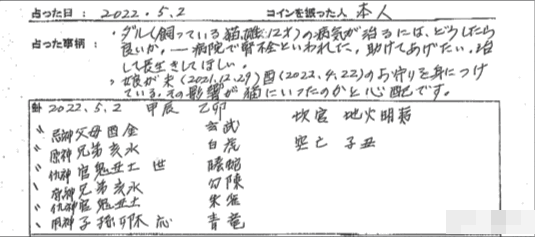 占った日： 2022.5.2 コインを振った人 本人
占った事柄：・ダル(飼っている猫、雌、12才)の病気が治るには、どうしたら
良いか。—病院で腎不全といわれた。助けてあげたい。治
して長生きしてほしい。
・娘が未(2021.12.29)酉(2022.4.22)のお守りを身につけ
ている。その影響が猫にいったのかと心配です。
2022.5.2 甲辰 乙卯 坎宮 地火明夷
〃 忌神 父母酉金 玄武 空亡 子丑
〃 原神 兄弟亥水 白虎
〃 仇神 官鬼丑土 世 騰蛇
原神 兄弟亥水 勾陳
〃 仇神 官鬼丑土 朱雀
用神 子孫卯木 応 青竜